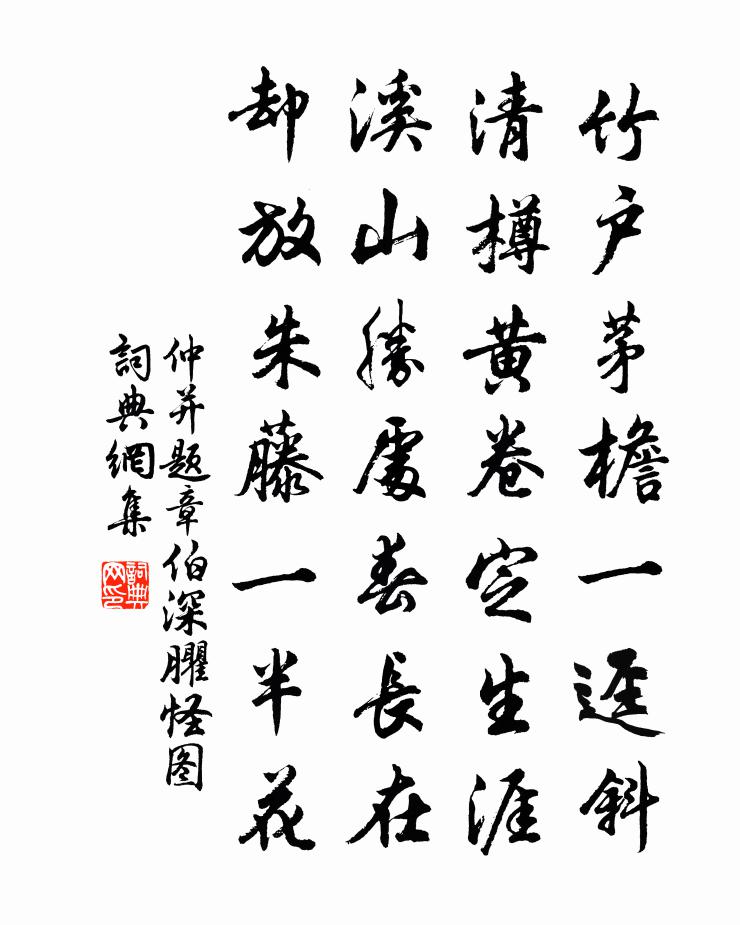 竹户茅檐一逕斜
清樽黄卷定生涯
溪山勝處春長在
却放朱藤一半花
仲并题章伯深臞怪图
詞典網集
詞典网印